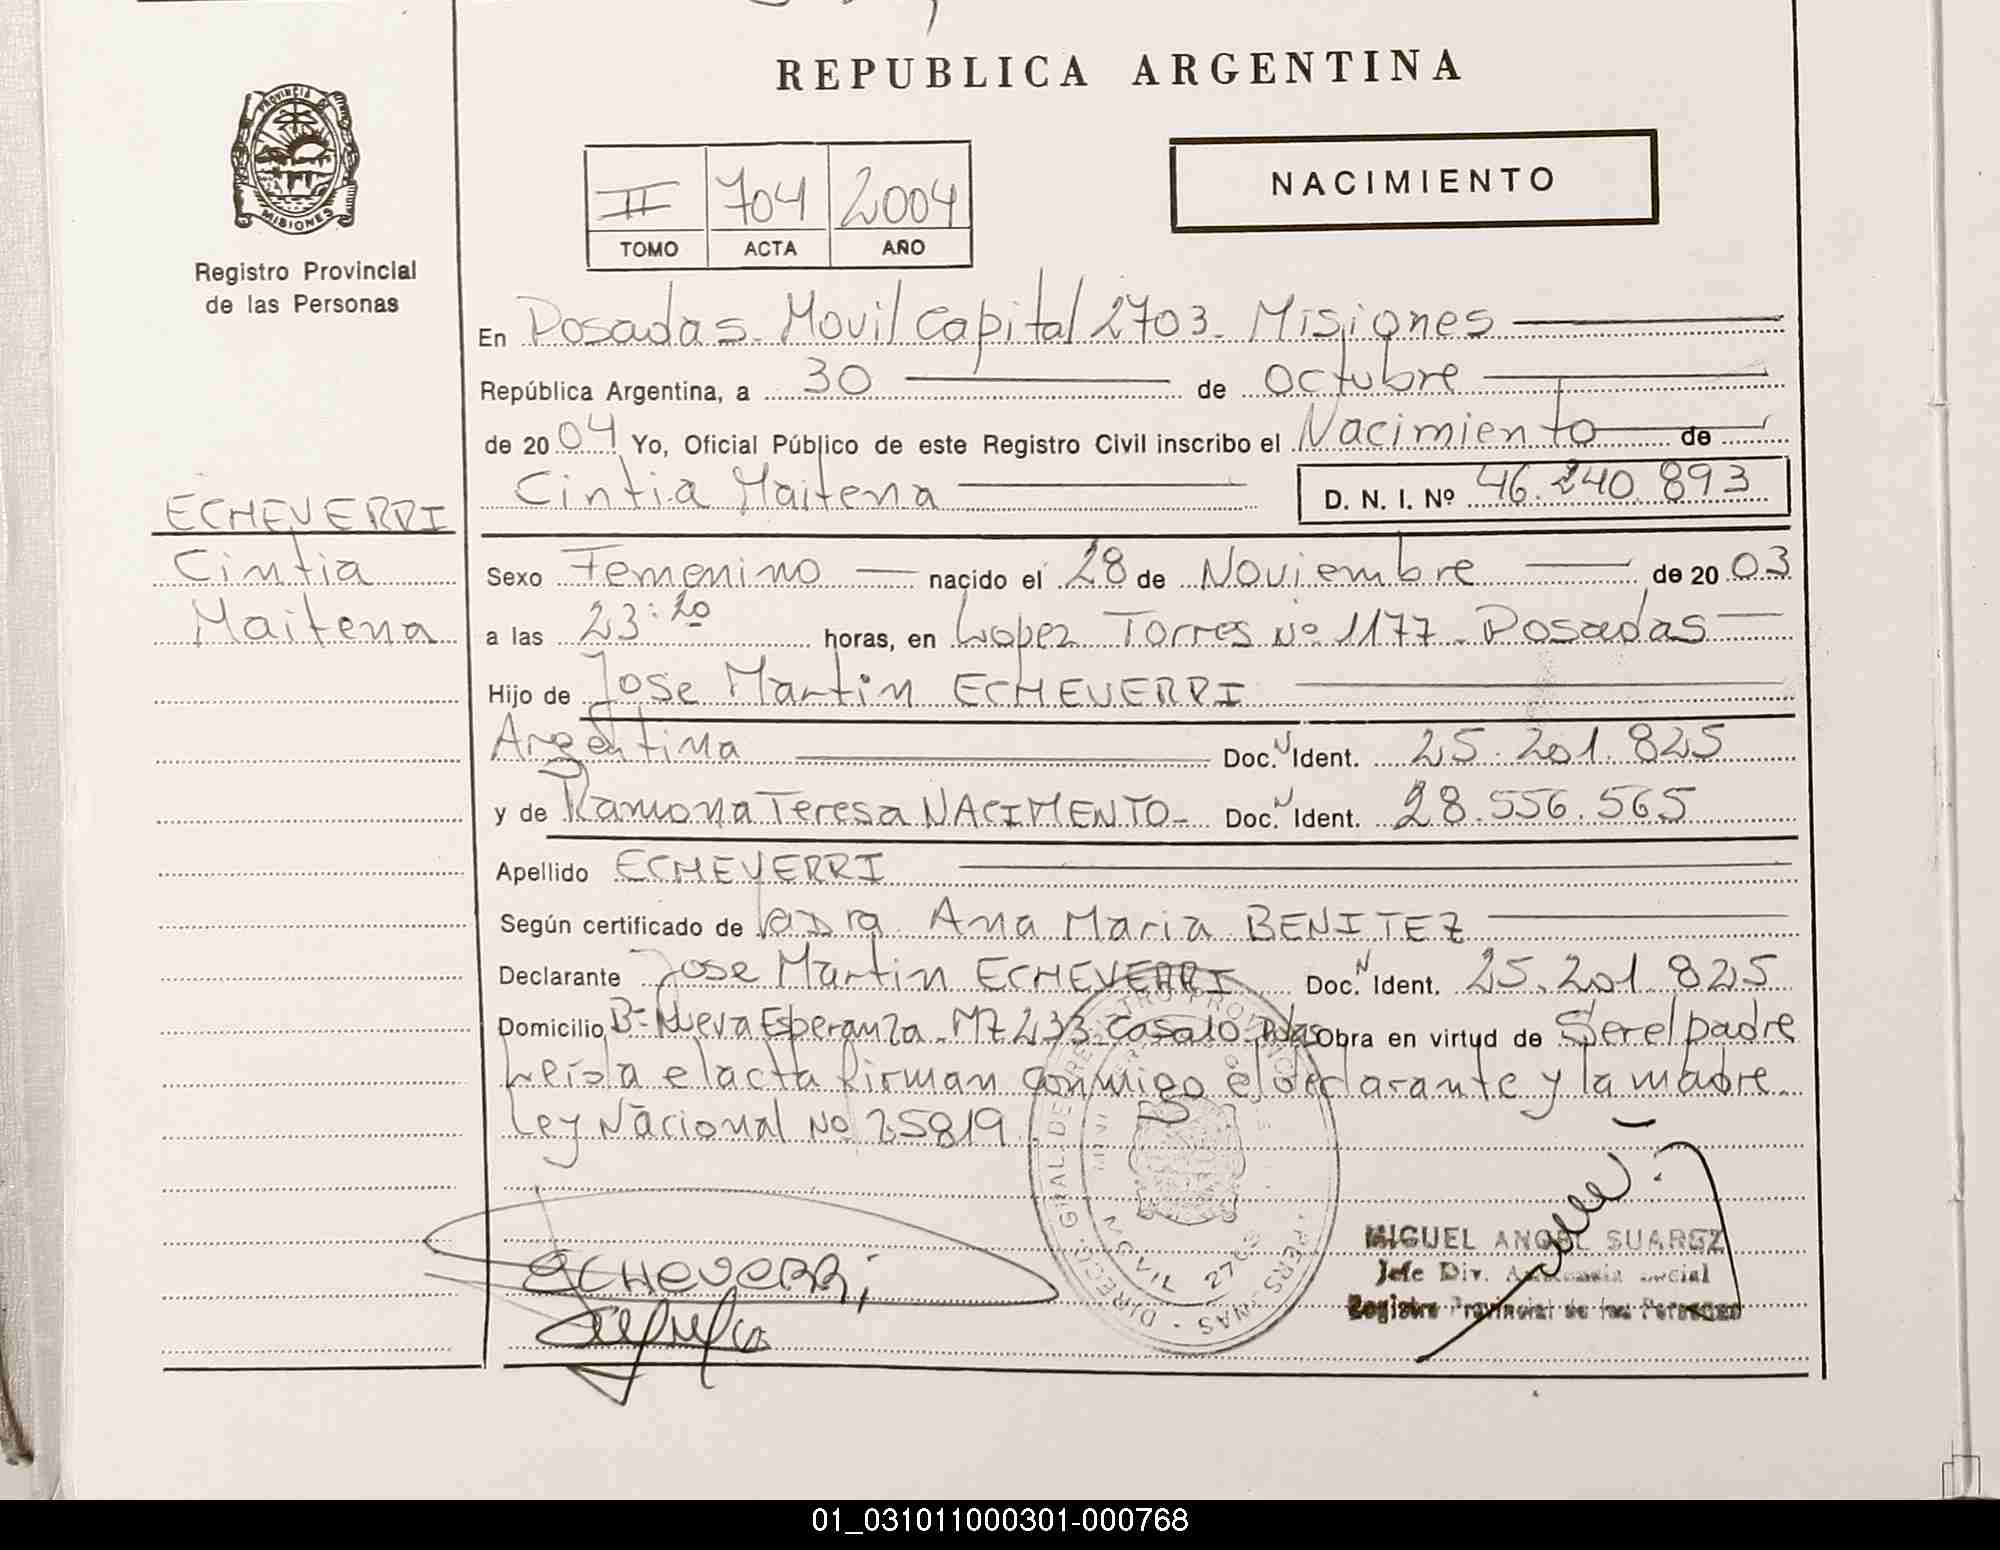 REPUBLICA ARGENTINA
PROVINCIA DE
MISIONES
Registro Provincial
de las Personas
II 704 2004
TOMO ACTA AÑO
NACIMIENTO
En Posadas. Movil Capital 2703. Misiones
República Argentina, a 30 de Octubre
de 2004 Yo, Oficial Público de este Registro Civil inscribo el Nacimiento de
Cintia Maitena D. N. I. Nº 46.240.893
ECHEVERRI
Cintia
Maitena
Sexo Femenino nacido el 28 de Noviembre de 2003
a las 23:20 horas, en Lopez Torres Nº 1177 - Posadas
Hijo de Jose Martin ECHEVERRI
Argentina Doc. N Ident. 25.201.825
y de Ramona Teresa NACIMENTO - Doc. N Ident. 28.556.565
Apellido ECHEVERRI
Según certificado de la Dra Ana Maria BENITEZ
Declarante Jose Martin ECHEVERRI Doc. N Ident. 25.201.825
Domicilio Bº Nueva Esperanza - MZ 233 - Casa 10 Pdas Obra en virtud de Ser el padre
Leída el acta firman conmigo el declarante y la madre
Ley Nacional Nº 25819
ECHEVERRi
MIGUEL ANGEL SUAREZ
Jefe Div. Social
Registro Provincial de las Personas
2703
01_031011000301-000768